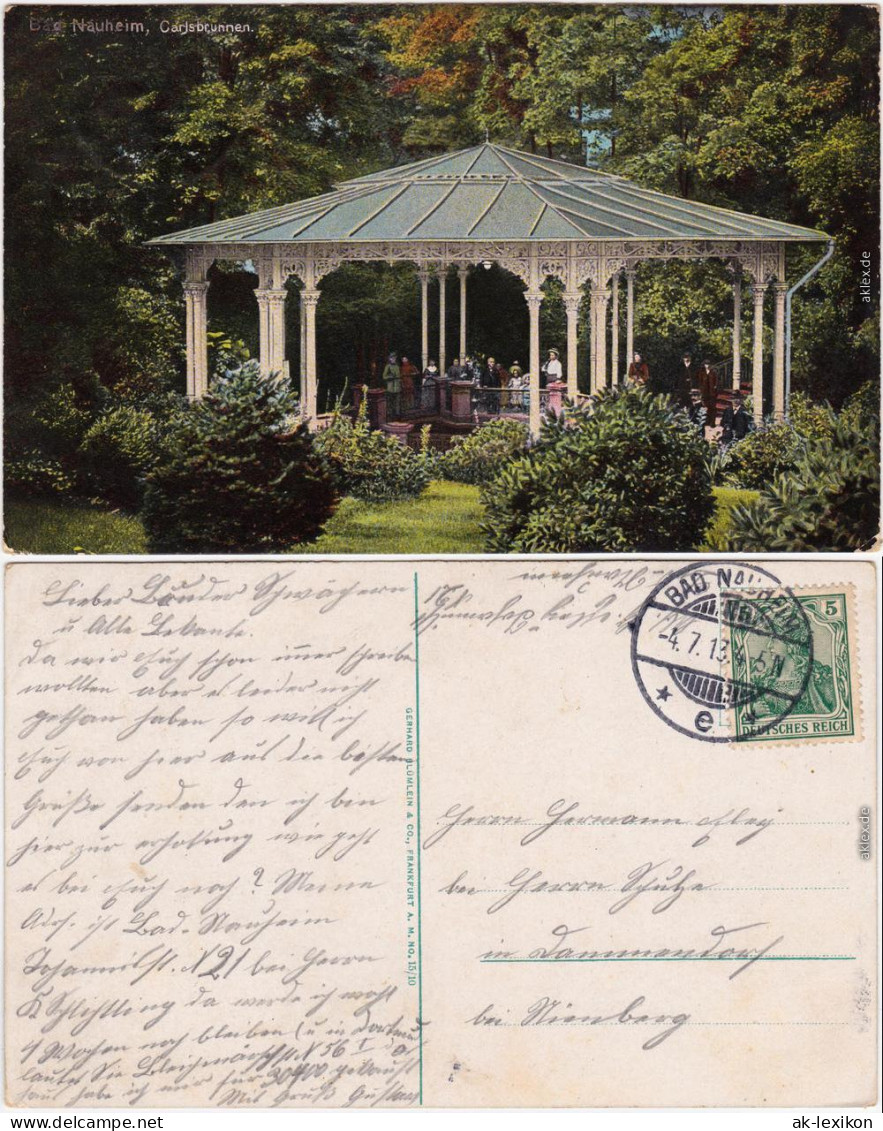 Bad Nauheim, Carlsbrunnen.
aklex.de
Lieber Bruder Schwägerin
u Alle Bekante.
Da wir Euch schon immer schreiben
wollten aber es leider nicht
gethan haben so will ich
Euch von hier aus die besten
Grüße senden den ich bin
hier zur erholung wie geht
es bei Euch noch? Meine
Adr. ist Bad-Nauheim
Johannisst. N 21 bei Herrn
K Schlichtling da werde ich wohl
4 Wochen noch bleiben (u in Dortmund
Mit Gruß Gustav
GERHARD BLÜMLEIN & CO., FRANKFURT A. M. NO. 15/10
BAD NAUHEIM
-4.7.13. 4-5N
* e *
5
DEUTSCHES REICH
Herrn Hermann
bei Herrn Schulze
in Dammendorf
bei Nienberg
aklex.de
ak-lexikon